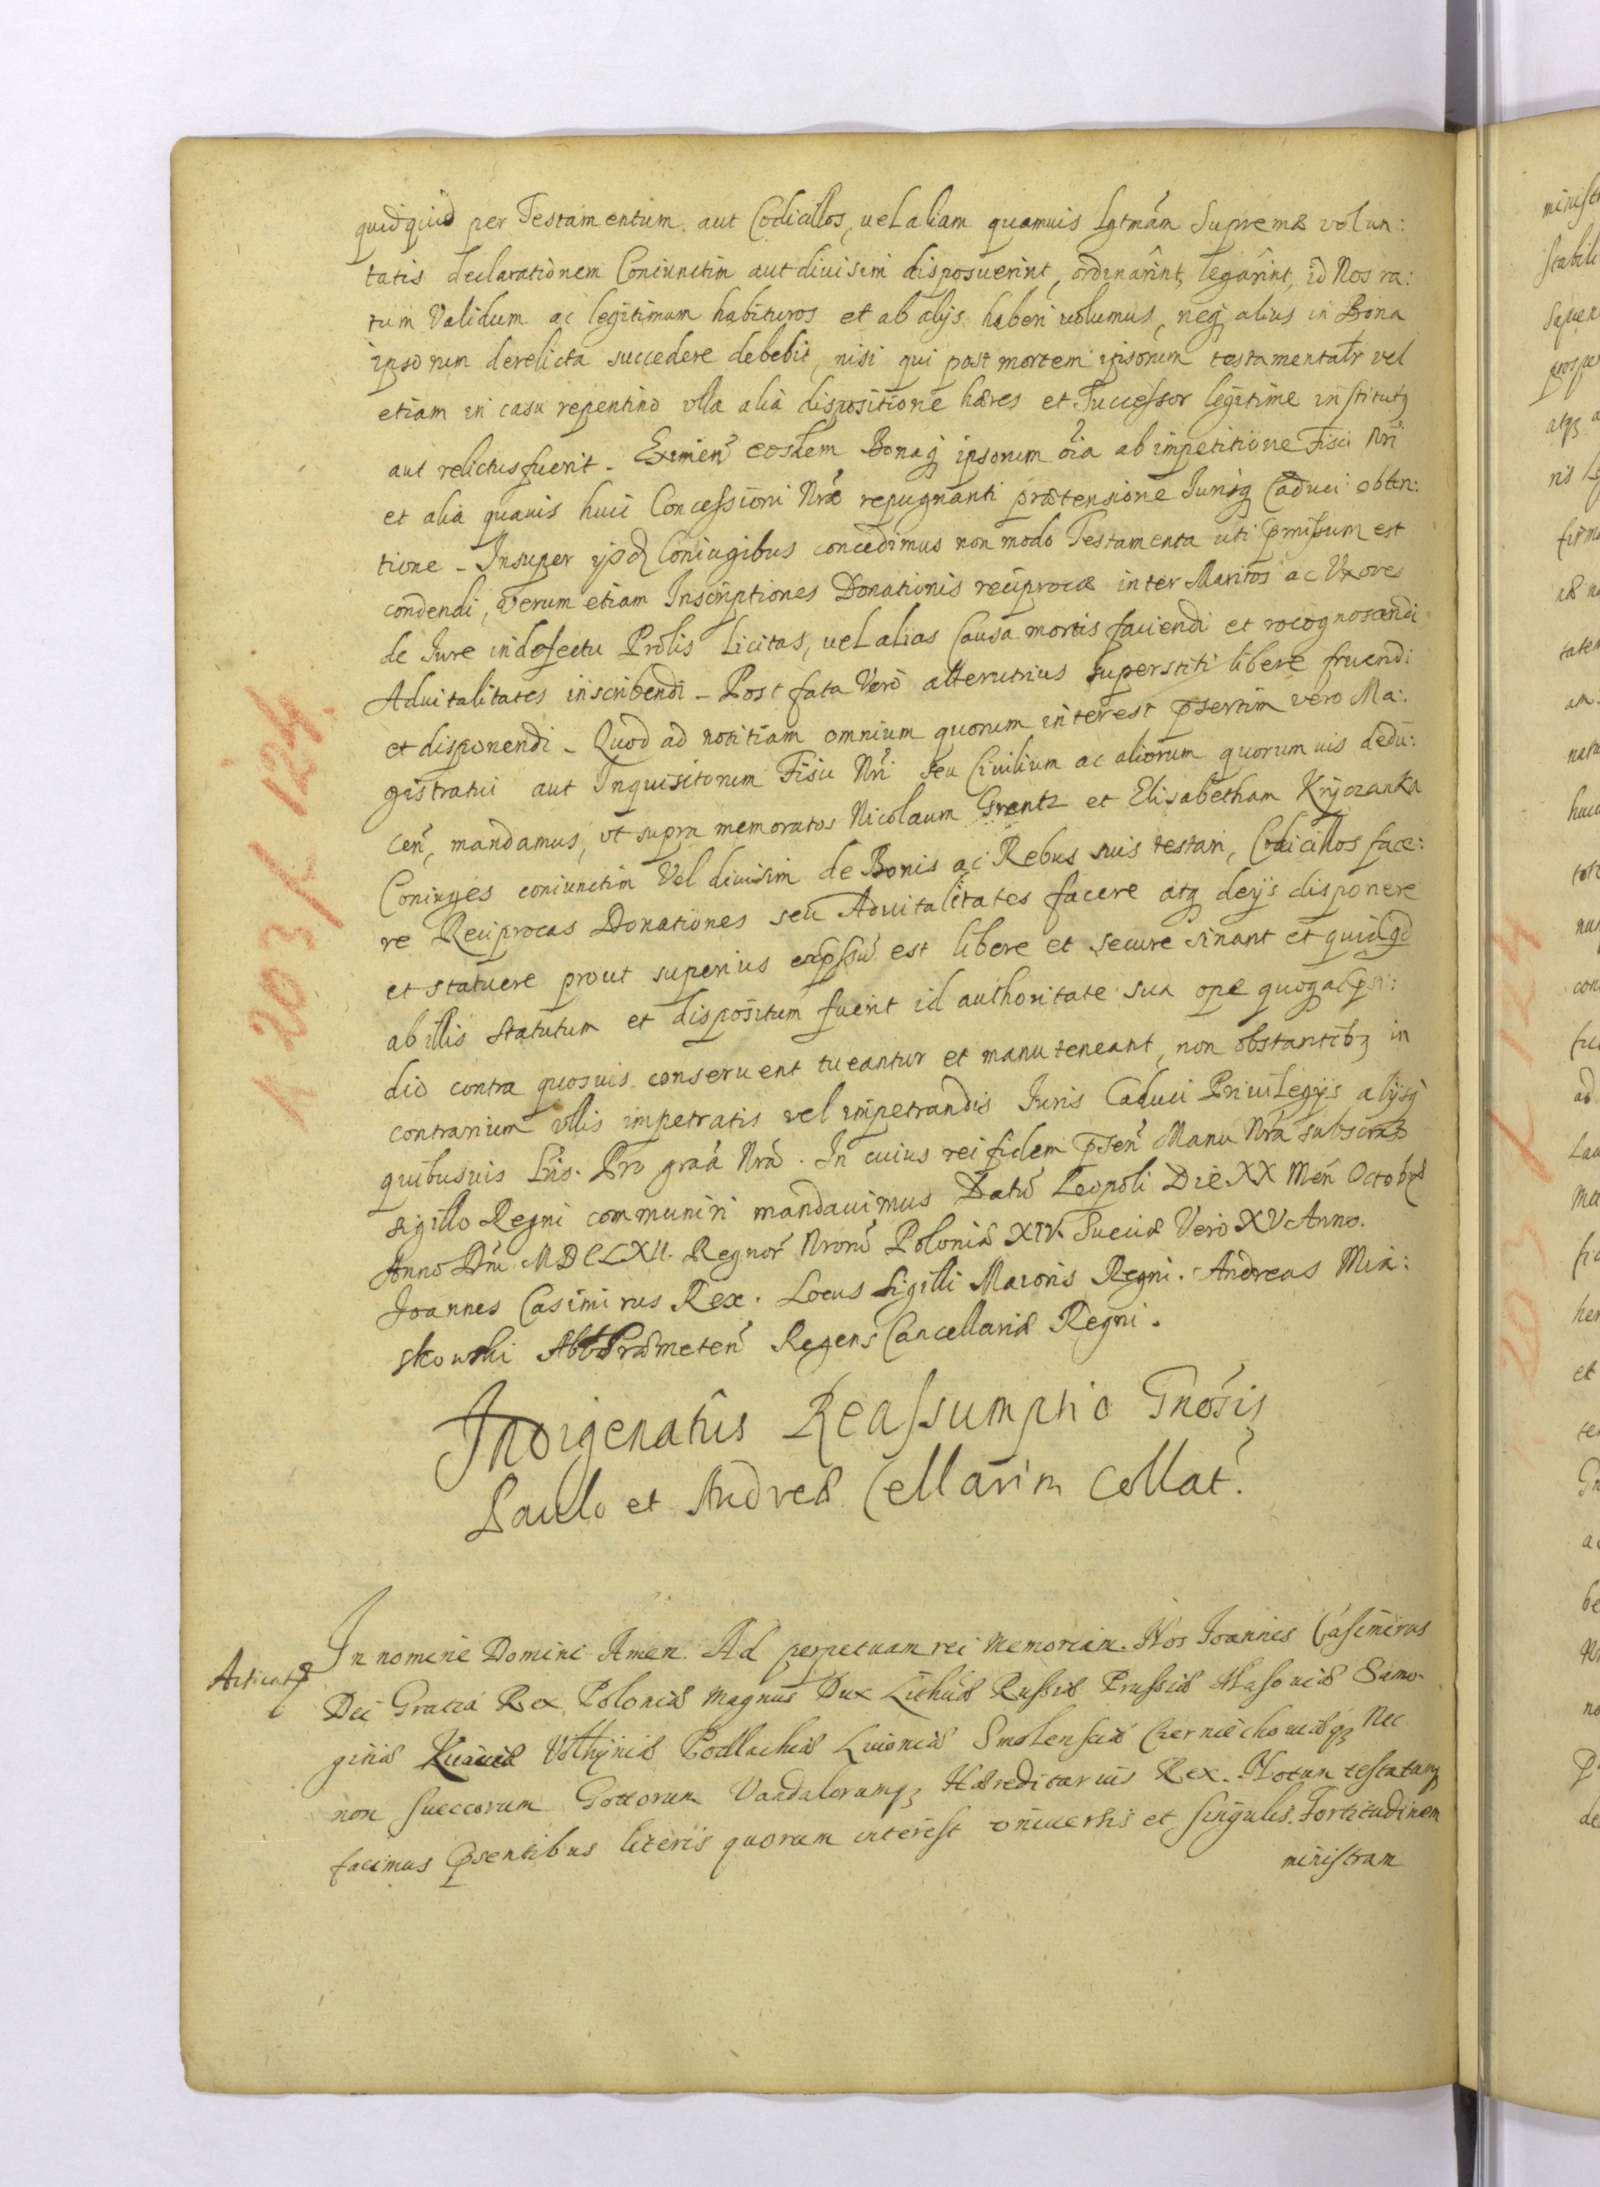 quidquid per Testamentum aut Codicillos, uel aliam quamuis Lgtmãm Supremæ volun:
tatis declarationem Coniunctim aut diuisim disposuerint, ordinarint, legarint, id Nos ra:
tum Validum ac legitimum habituros et ab alÿs haberi uolumus, neq₃ alius in Bona
ipsorum derelicta succedere debebit, nisi qui post mortem ipsorum testamentalr vel
etiam in casu repentino vlla alia dispositione hæres et Successor legitime institut₉
aut relictus fuerit. Eximen̄ eosdem Bonaq₃ ipsorum oĩa ab impetitione Fisci Nrĩ
et alia quauis huic Concessioni Nræ repugnanti prætensione Jurisq₃ Caduci obten:
tione. Insuper ijsd̄ Coniugibus concedimus non modo Testamenta uti p̃missum est
condendi, verum etiam Inscriptiones Donationis reciprocæ inter Maritos ac Vxores
de Jure in defectu Prolis Licitas, uel alias Causa mortis faciendi et recognoscendi
Aduitalitates inscribendi. Post fata Vero alterutrius superstiti libere fruendi
et disponendi. Quod ad notitiam omnium quorum interest p̃sertim vero Ma:
gistratui aut Inquisitorum Fisci Nrĩ seu Ciuilium ac aliorum quorumuis dedu:
cen̄, mandamus, vt supra memoratos Nicolaum Grantz et Elisabetham Kryczanka
Coniuges coniunctim Vel diuisim de Bonis ac Rebus suis testari, Codicillos face:
re Reciprocas Donationes seu Aduitalitates facere atq₃ de ijs disponere
et statuere prout superius exp̃ssũ est libere et secure sinant et quidqd
ab illis statutum et dispositum fuerit id authoritate sua ope quoq₃ ac p̃si:
dio contra quosuis conseruent tueantur et manuteneant, non obstantib₉ in
contrarium vllis impetratis vel impetrandis Juris Caduci Priuilegijs alijsq₃
quibusuis Lris. Pro grãa Nrã. In cuius rei fidem p̃sen̄ Manu Nrã subscrip̃
sigillo Regni communiri mandauimus Datũ Leopoli Die XX Men̄ Octobr̃
Anno Dnĩ MDCLXII. Regnor̃ Nrorũ Poloniæ XIV. Sueciæ Vero XV Anno.
Joannes Casimirus Rex. Locus Sigilli Maioris Regni. Andreas Mia:
skowski Abb Præmeten̄ Regens Cancellariæ Regni.
Indigenatûs Reassumptio Gnõsis
Paulo et Andreæ Cellarim Collat.
Acticat₉
In nomine Domini Amen. Ad perpetuam rei Memoriam. Nos Joannes Casimirus
Dei Gratia Rex Poloniæ Magnus Dux Lithuæ Russiæ Prussiæ Masouiæ Samo-
gitiæ Kiiouiæ Volhyniæ Podlachiæ Liuoniæ Smolensciæ Czerniechouiæq₃ Nec
non Sueccorum Gottorum Vandalorumq₃ Hæreditarius Rex. Notum testatumq₃
facimus p̃sentibus literis quorum interest vniuersis et singulis. Fortitudinem
ministram
K 203 / K 124